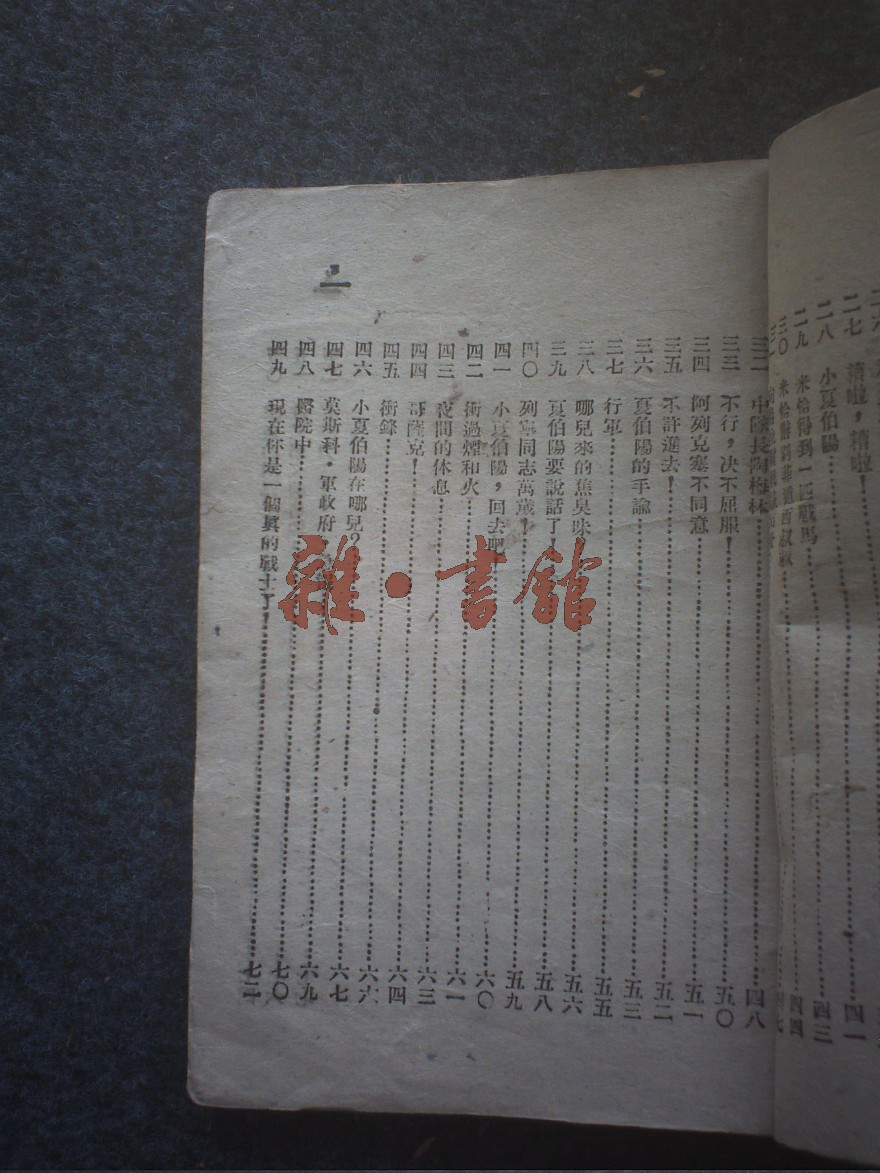 二七 糟啦，糟啦！ 四一
二八 小夏伯陽 四三
二九 米恰得到一匹戰馬 四四
三〇 米恰 西叔叔
三二 中隊長陶梅林 四八
三三 不行，决不屈服！ 五〇
三四 阿列克塞不同意 五一
三五 不許進去！ 五二
三六 夏伯陽的手諭 五三
三七 行軍 五五
三八 哪兒來的焦臭味 五六
三九 夏伯陽要說話了！ 五八
四〇 列寧同志萬歲！ 五九
四一 小夏伯陽，回去吧 六〇
四二 衝過煙和火 六一
四三 夜間的休息 六三
四四 哥薩克！ 六四
四五 衝鋒 六六
四六 小夏伯陽在哪兒？ 六七
四七 莫斯科·軍政府 六九
四八 醫院中 七〇
四九 現在你是一個眞的戰士了！ 七二
雜·書館